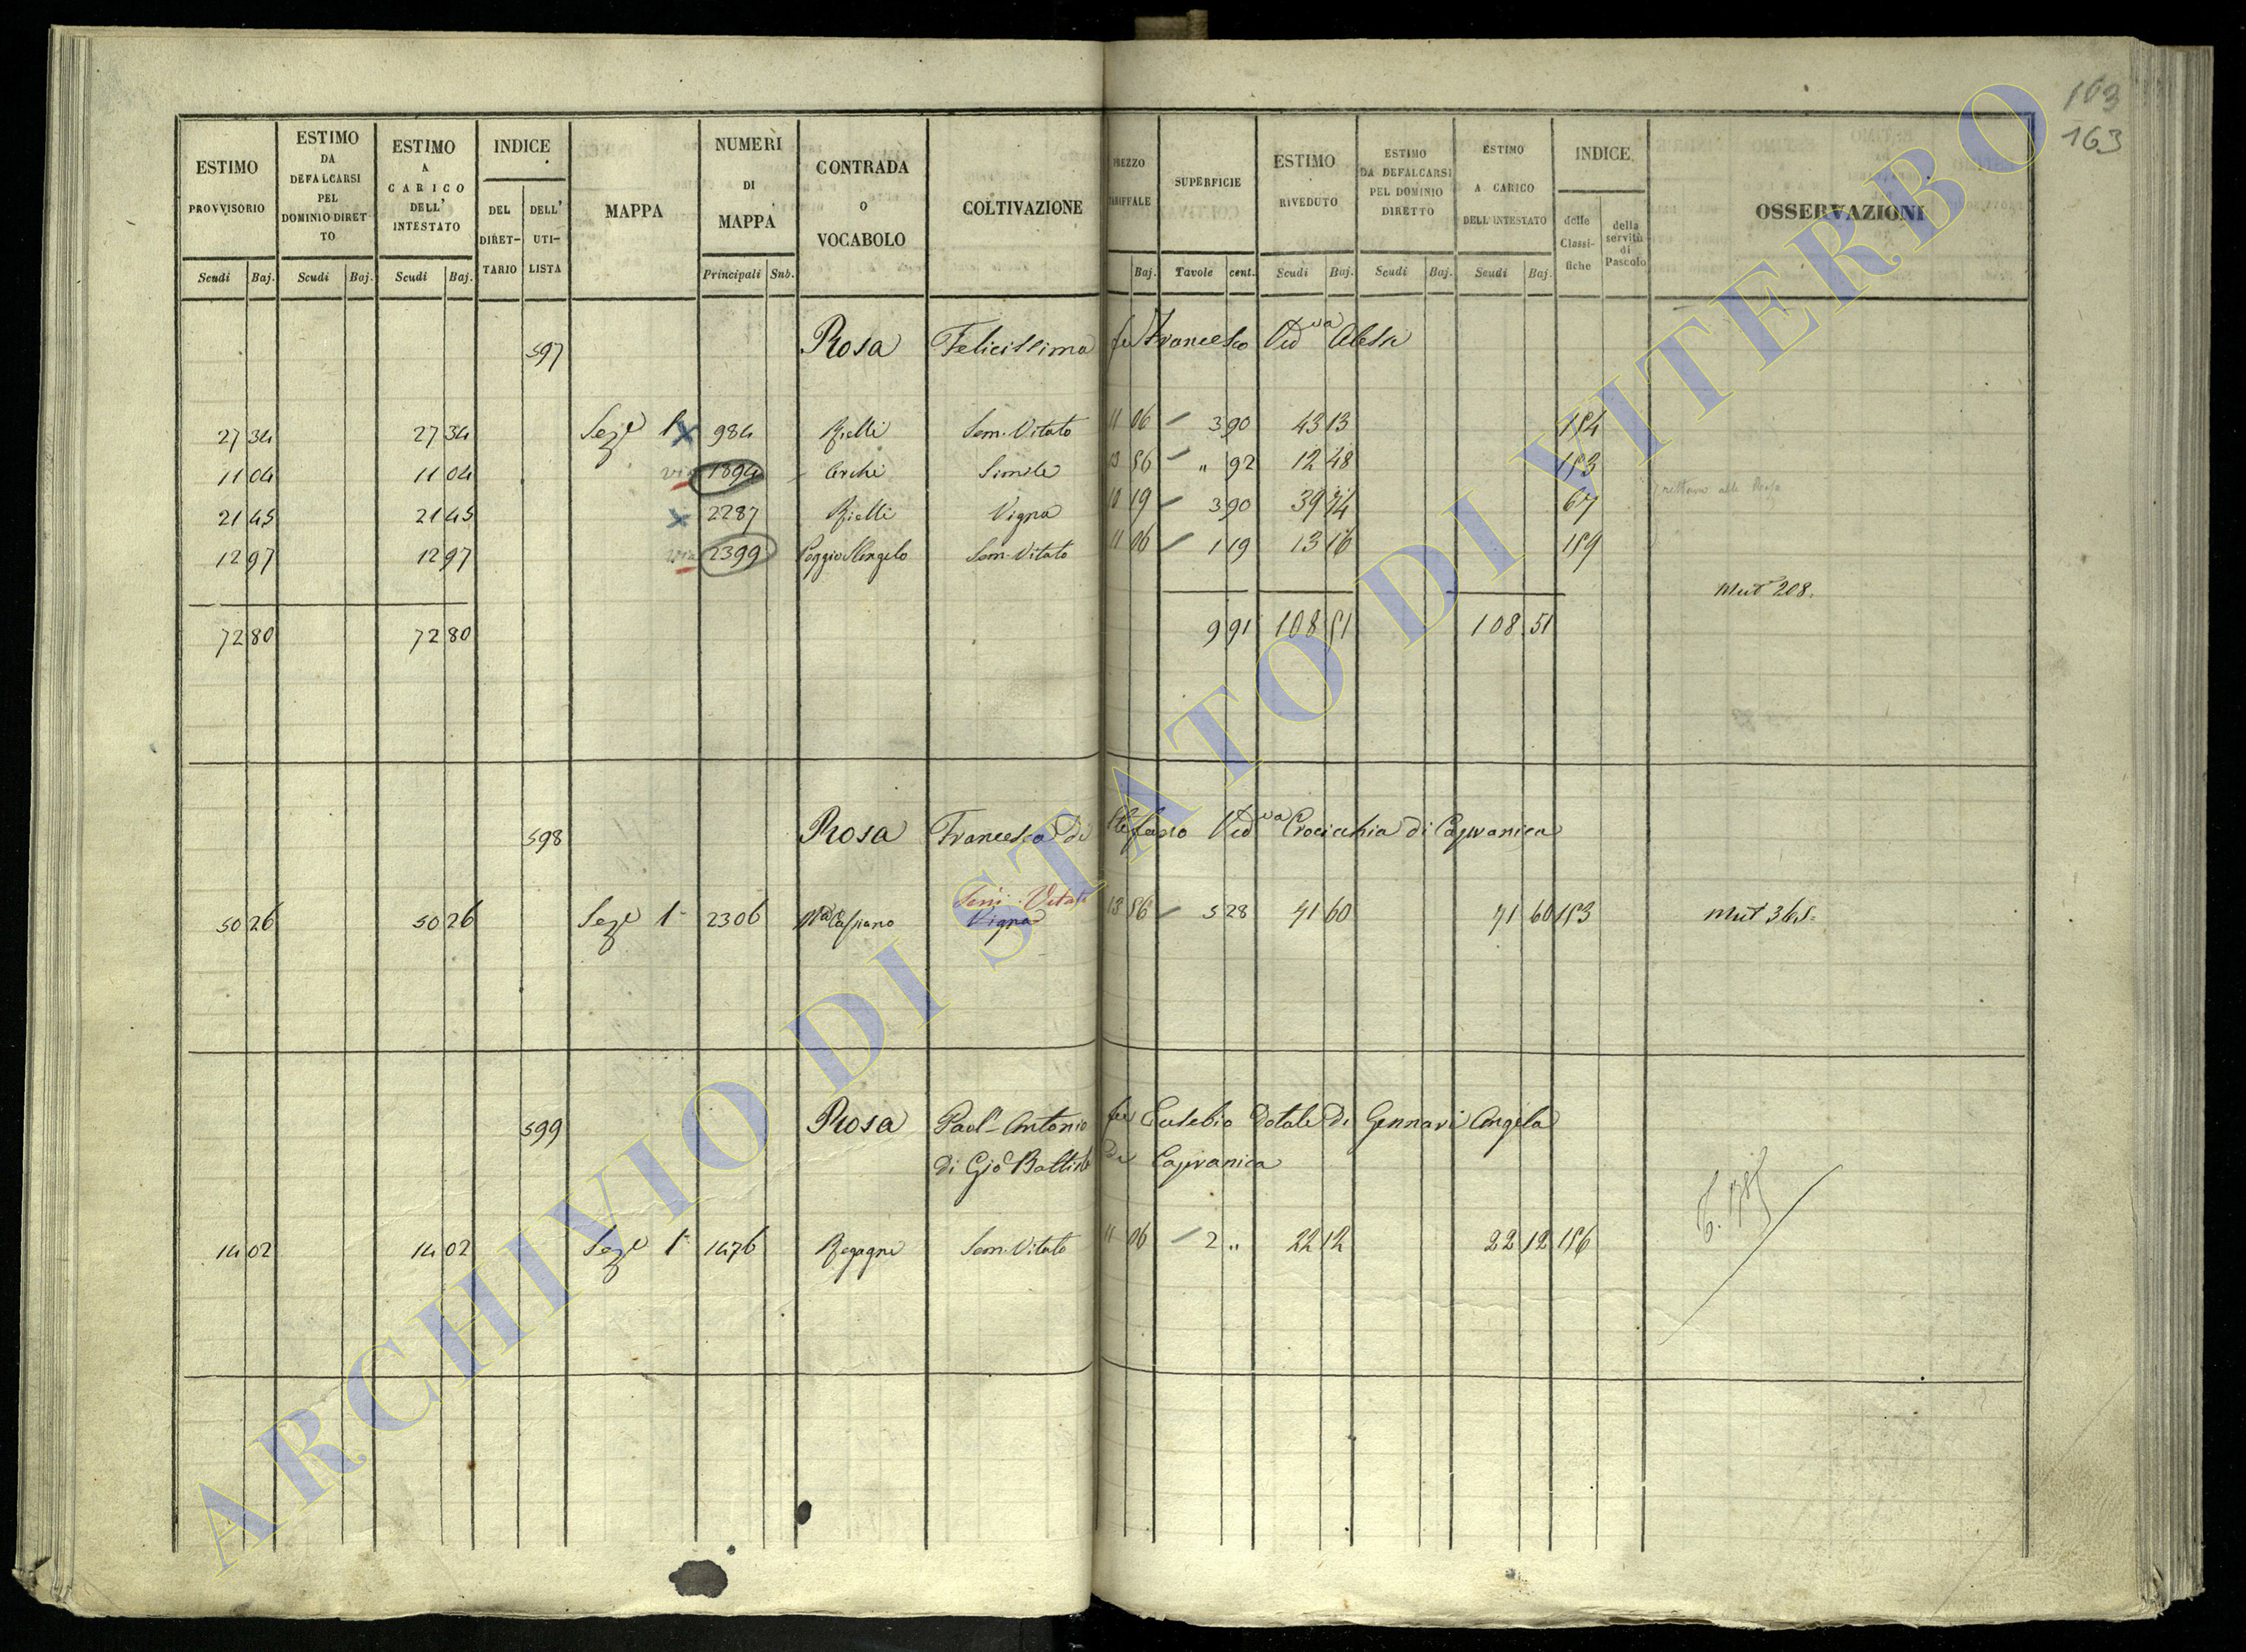 103
163
ESTIMO PROVVISORIO
ESTIMO DA DEFALCARSI PEL DOMINIO DIRETTO
ESTIMO A CARICO DELL' INTESTATO
INDICE
DEL DIRETTARIO
DELL' UTILISTA
MAPPA
NUMERI DI MAPPA
CONTRADA O VOCABOLO
COLTIVAZIONE
PREZZO TARIFFALE
SUPERFICIE
ESTIMO RIVEDUTO
ESTIMO DA DEFALCARSI PEL DOMINIO DIRETTO
ESTIMO A CARICO DELL' INTESTATO
INDICE
delle Classifiche
della servitù di Pascolo
OSSERVAZIONI
Scudi Baj. Scudi Baj. Scudi Baj. Principali Sub. Baj. Tavole cent. Scudi Baj. Scudi Baj. Scudi Baj.
597 Rosa Felicissima fu Francesco Ved va Alessi
27 34 27 34 Seze 1a 984 Rielli Sem. Vitato 11 06 3 90 43 13 184
11 04 11 04 via 1894 Cerchi Simile 13 56 " 92 12 48 183
21 45 21 45 2287 Rielli Vigna 10 19 3 90 39 74 67
12 97 12 97 via 2399 Poggio S. Angelo Sem. Vitato 11 06 1 19 13 16 189
Mut 208.
72 80 72 80 9 91 108 51 108 51
598 Rosa Francesca Di Stefano Ved va Crocicchia di Capranica
Sem. Vitato
50 26 50 26 Seze 1a 2306 Vigna 13 56 5 28 71 60 71 60 183 Mut 365.
599 Rosa Paol Antonio fu Eusebio Dotale Di Gennari Angela
di Gio Battista Di Capranica
14 02 14 02 Seze 1a 1476 Regagni Sem. Vitato 11 06 2 " 22 12 22 12 186
ARCHIVIO DI STATO DI VITERBO